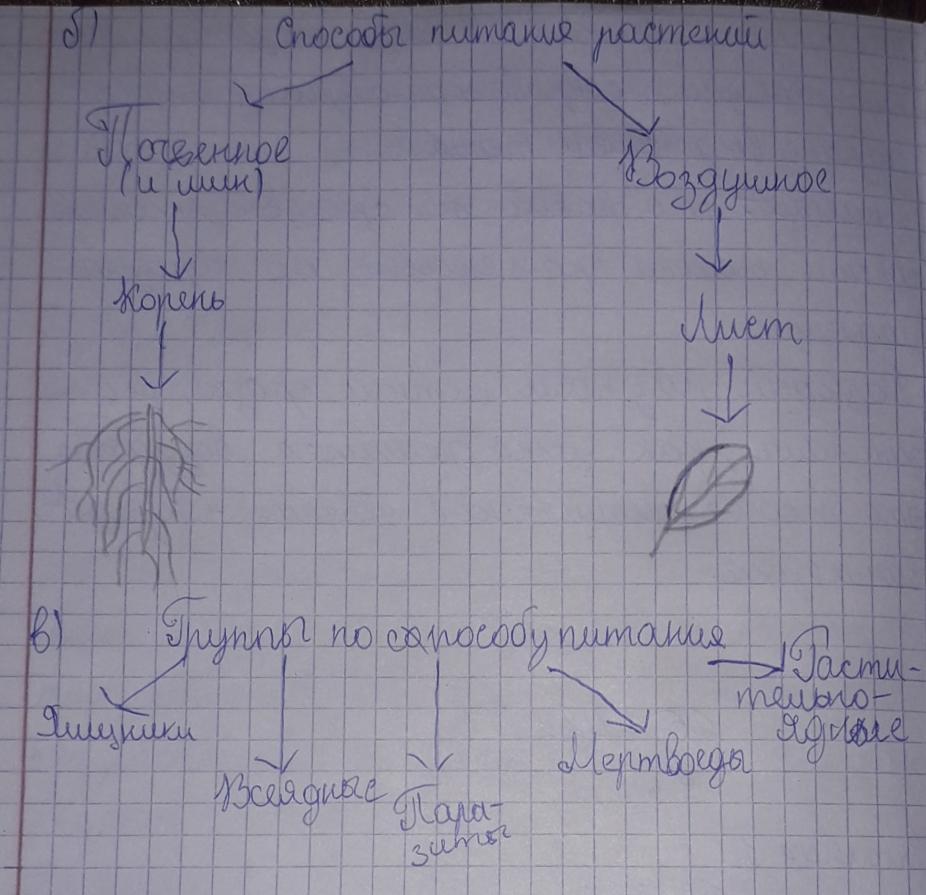 б) Способы питания растений
Почвенное
(и мин)
Воздушное
Корень
Лист
в) Группы по сапособу питания
Хищники
Всеядные
Пара-
зиты
Мертвоеды
Расти-
тельно-
ядные